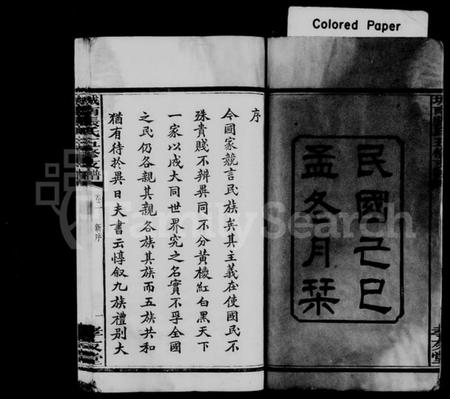 Colored Paper
民國己巳
孟冬月栞
序
今國家競言民族矣其主義在使國民不
殊貴賤不辨異同不分黃椶紅白黑天下
一家以成大同世界究之名實不孚全國
之民仍各親其親各族其族而五族共和
猶有待於異日夫書云惇叙九族禮別大
卷一
新序
FamilySearch